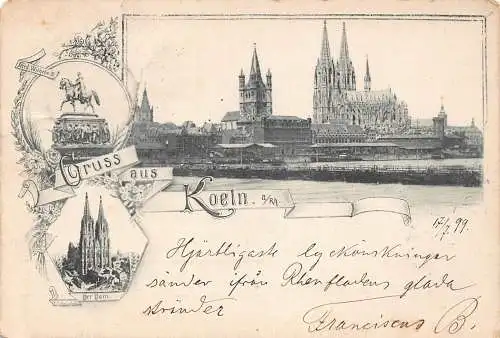 Gruss aus
Koeln. a/Rh.
Der Dom.
17/7 99.
Hjärtligaste lyckönskningar
sänder från Rhenflodens glada
stränder
Franciscus B.